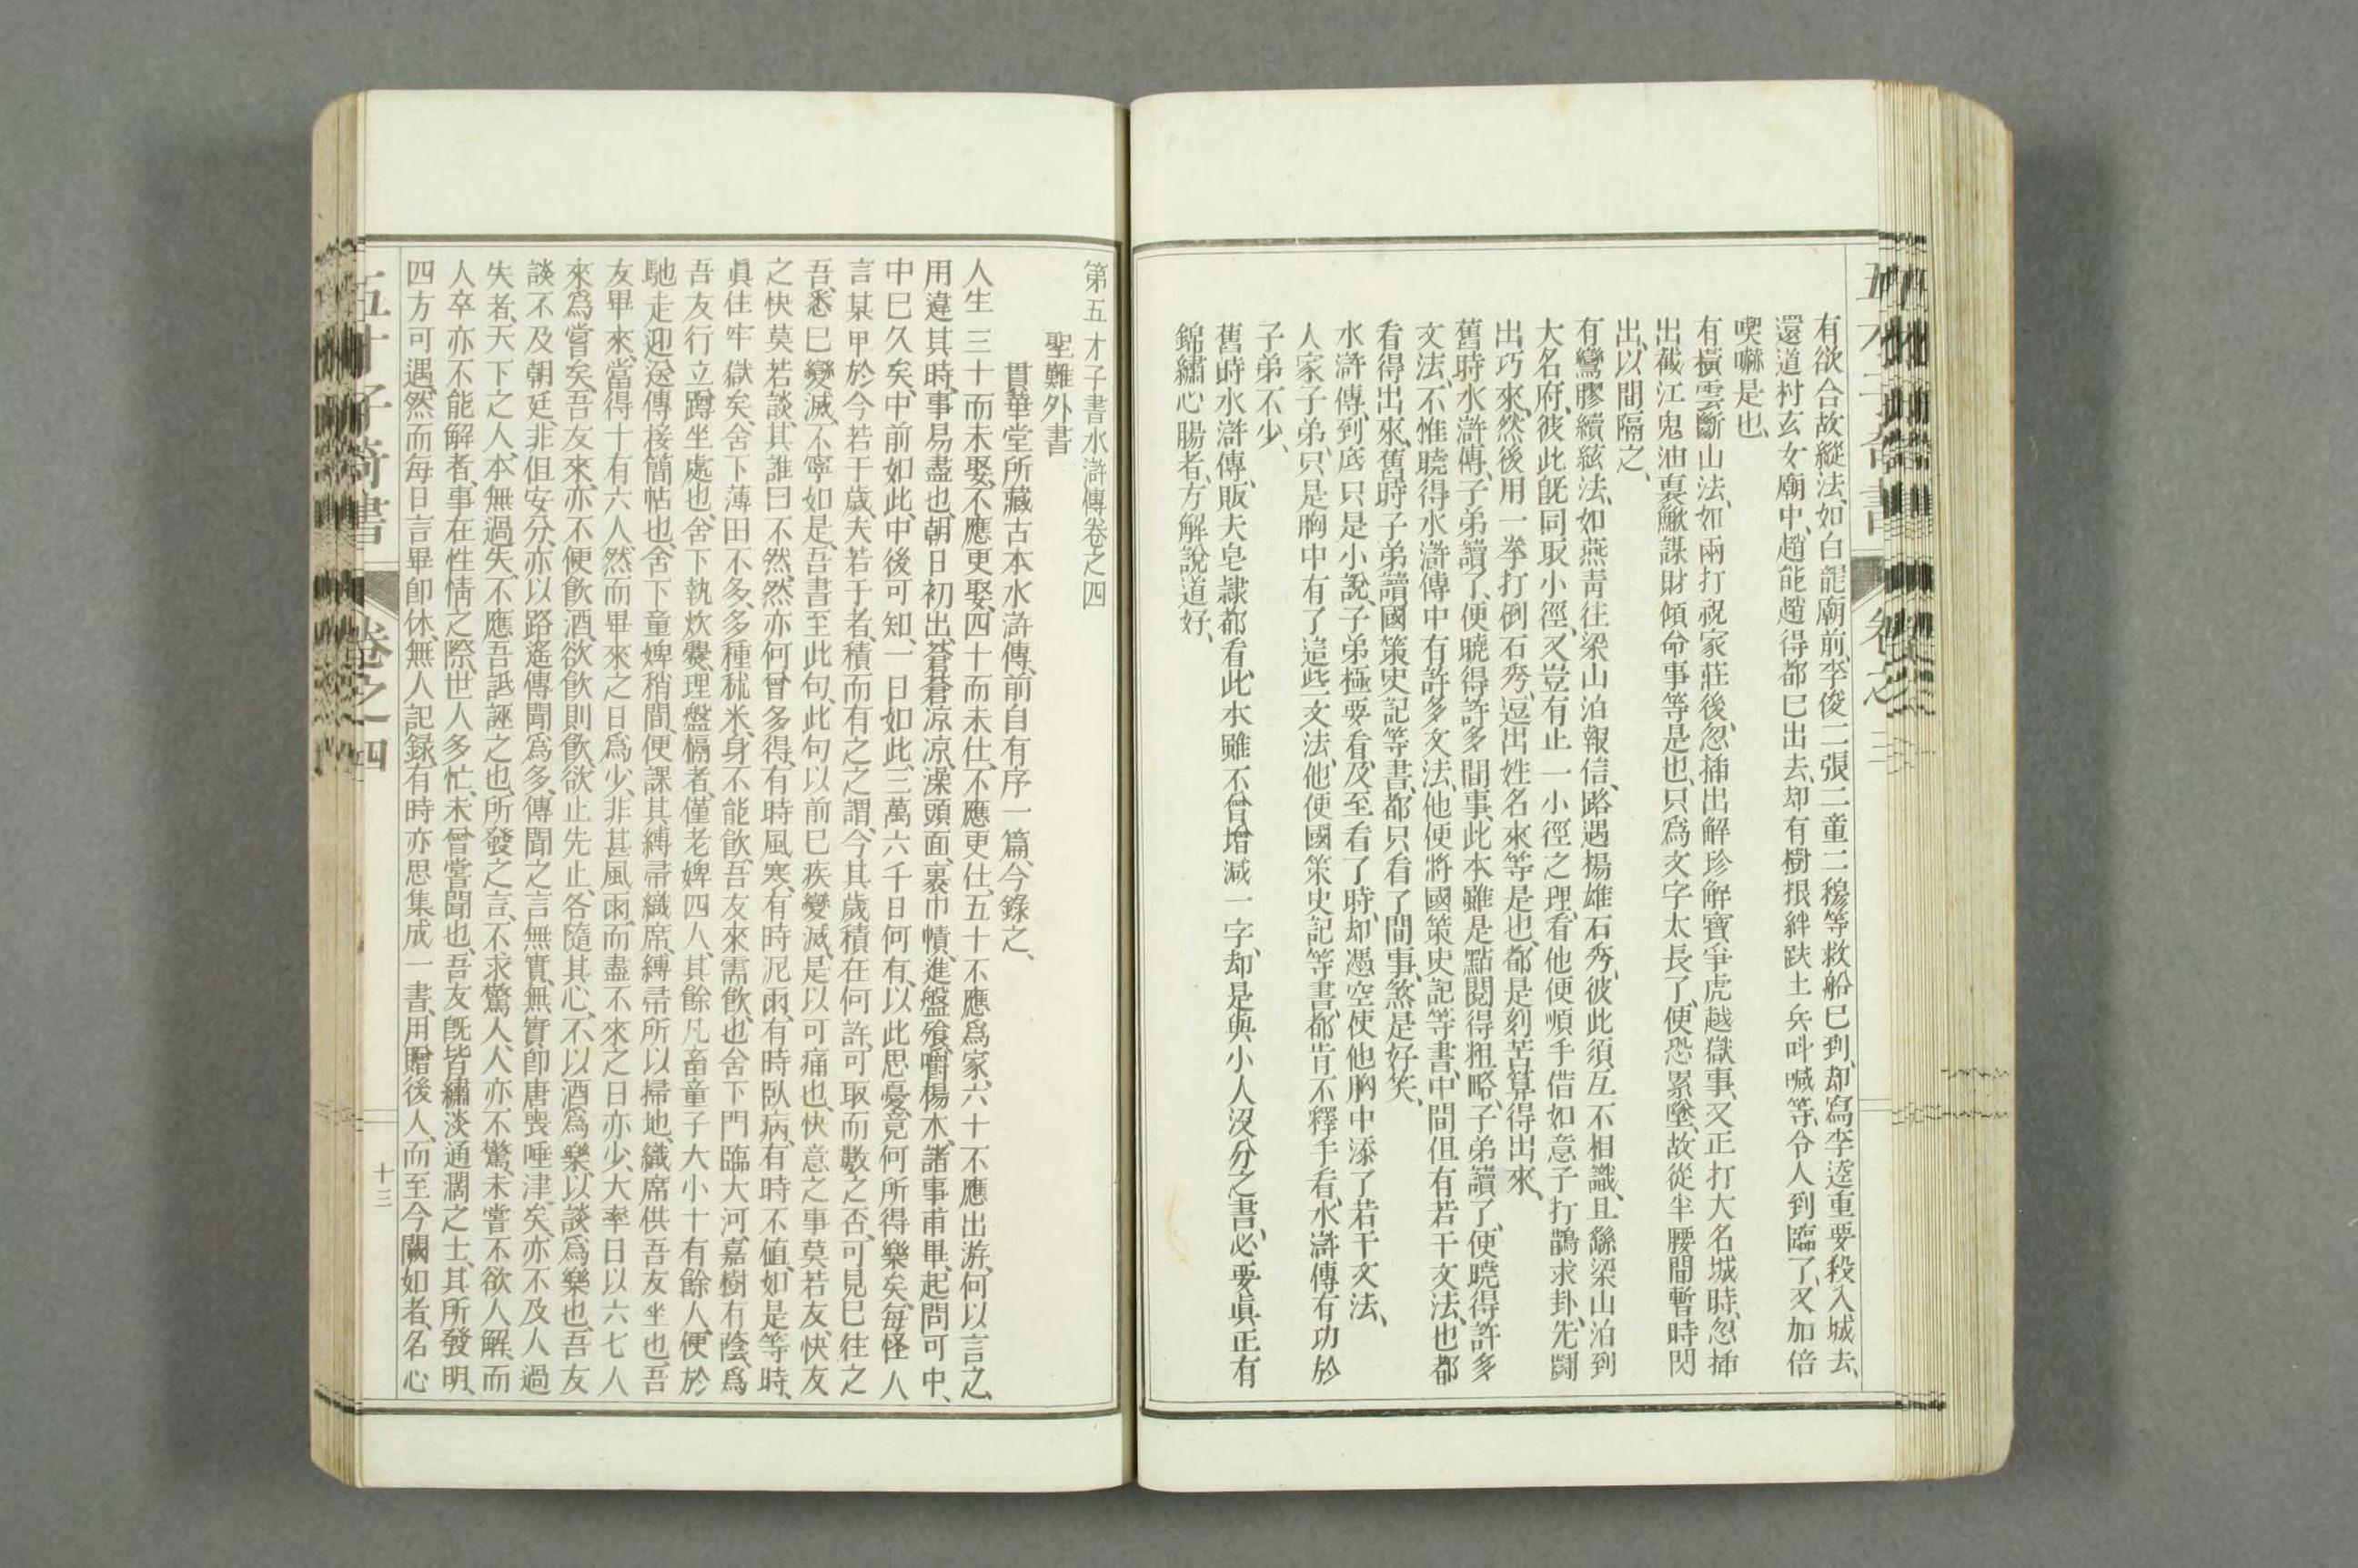 有欲合故縱法、如白龍廟前、李俊二張二童二穆等救船巳到、却寫李逵重要殺入城去、
還道村玄女廟中、趙能趙得都巳出去、却有樹根絆跌土兵叫喊等、令人到臨了、又加倍
喫嚇是也、
有橫雲斷山法、如兩打祝家莊後、忽揷出解珍解寶爭虎越獄事、又正打大名城時、忽揷
出截江鬼油裏鰍謀財傾命事等是也、只爲文字太長了、便恐累墜、故從半腰間暫時閃
出、以間隔之、
有鸞膠續絃法、如燕青往梁山泊報信、路遇楊雄石秀、彼此須互不相識、且繇梁山泊到
大名府、彼此旣同取小徑、又豈有止一小徑之理、看他便順手借如意子打鵲求卦、先鬭
出巧來、然後用一拳打倒石秀、逗出姓名來等是也、都是刻苦算得出來、
舊時水滸傳、子弟讀了、便曉得許多閒事、此本雖是點閱得粗略、子弟讀了、便曉得許多
文法、不惟曉得水滸傳中有許多文法、他便將國策史記等書、中間但有若干文法、也都
看得出來、舊時子弟讀國策史記等書、都只看了閒事、煞是好笑、
水滸傳、到底只是小說、子弟極要看、及至看了時、却憑空使他胸中添了若干文法、
人家子弟、只是胸中有了這些文法、他便國策史記等書、都肯不釋手看、水滸傳有功於
子弟不少、
舊時水滸傳、販夫皂隸都看、此本雖不曾增減一字、却是與小人沒分之書、必要眞正有
錦繡心腸者、方解說道好、
第五才子書水滸傳卷之四
聖難外書
貫華堂所藏古本水滸傳、前自有序一篇、今錄之、
人生三十而未娶、不應更娶、四十而未仕、不應更仕、五十不應爲家、六十不應出游、何以言之、
用違其時、事易盡也、朝日初出、蒼蒼凉凉、澡頭面、裹巾幘、進盤飱、嚼楊木、諸事甫畢、起問可中、
中巳久矣、中前如此、中後可知、一日如此、三萬六千日何有、以此思憂、竟何所得樂矣、每怪人
言某甲於今若干歲、夫若干者、積而有之之謂、今其歲積在何許、可取而數之否、可見巳往之
吾、悉巳變滅、不寧如是、吾書至此句、此句以前巳疾變滅、是以可痛也、快意之事莫若友、快友
之快莫若談、其誰曰不然、然亦何曾多得、有時風寒、有時泥雨、有時臥病、有時不値、如是等時、
眞住牢獄矣、舍下薄田不多、多種秫米、身不能飮、吾友來需飮也、舍下門臨大河、嘉樹有蔭、爲
吾友行立蹲坐處也、舍下執炊爨、理盤槅者、僅老婢四人、其餘凡畜童子大小十有餘人、便於
馳走迎送、傳接簡帖也、舍下童婢稍閒、便課其縛帚織席、縛帚所以掃地、織席供吾友坐也、吾
友畢來、當得十有六人、然而畢來之日爲少、非甚風雨、而盡不來之日亦少、大率日以六七人
來爲嘗矣、吾友來、亦不便飮酒、欲飮則飮、欲止先止、各隨其心、不以酒爲樂、以談爲樂也、吾友
談不及朝廷、非但安分、亦以路遙傳聞爲多、傳聞之言無實、無實卽唐喪唾津矣、亦不及人過
失者、天下之人、本無過失、不應吾詆誣之也、所發之言、不求驚人、人亦不驚、未嘗不欲人解、而
人卒亦不能解者、事在性情之際、世人多忙、未曾嘗聞也、吾友旣皆繡淡通濶之士、其所發明、
四方可遇、然而每日言畢卽休、無人記錄、有時亦思集成一書、用贈後人、而至今闕如者、名心
卷之四
十三